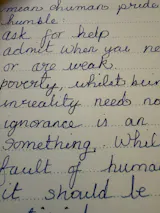 mean dhuman pride
humble!
ask for help
admit when you ne
or are weak.
poverty, whilst bur
inreality needs no
ignorance is an
Something, Whil
fault of huma
it should be